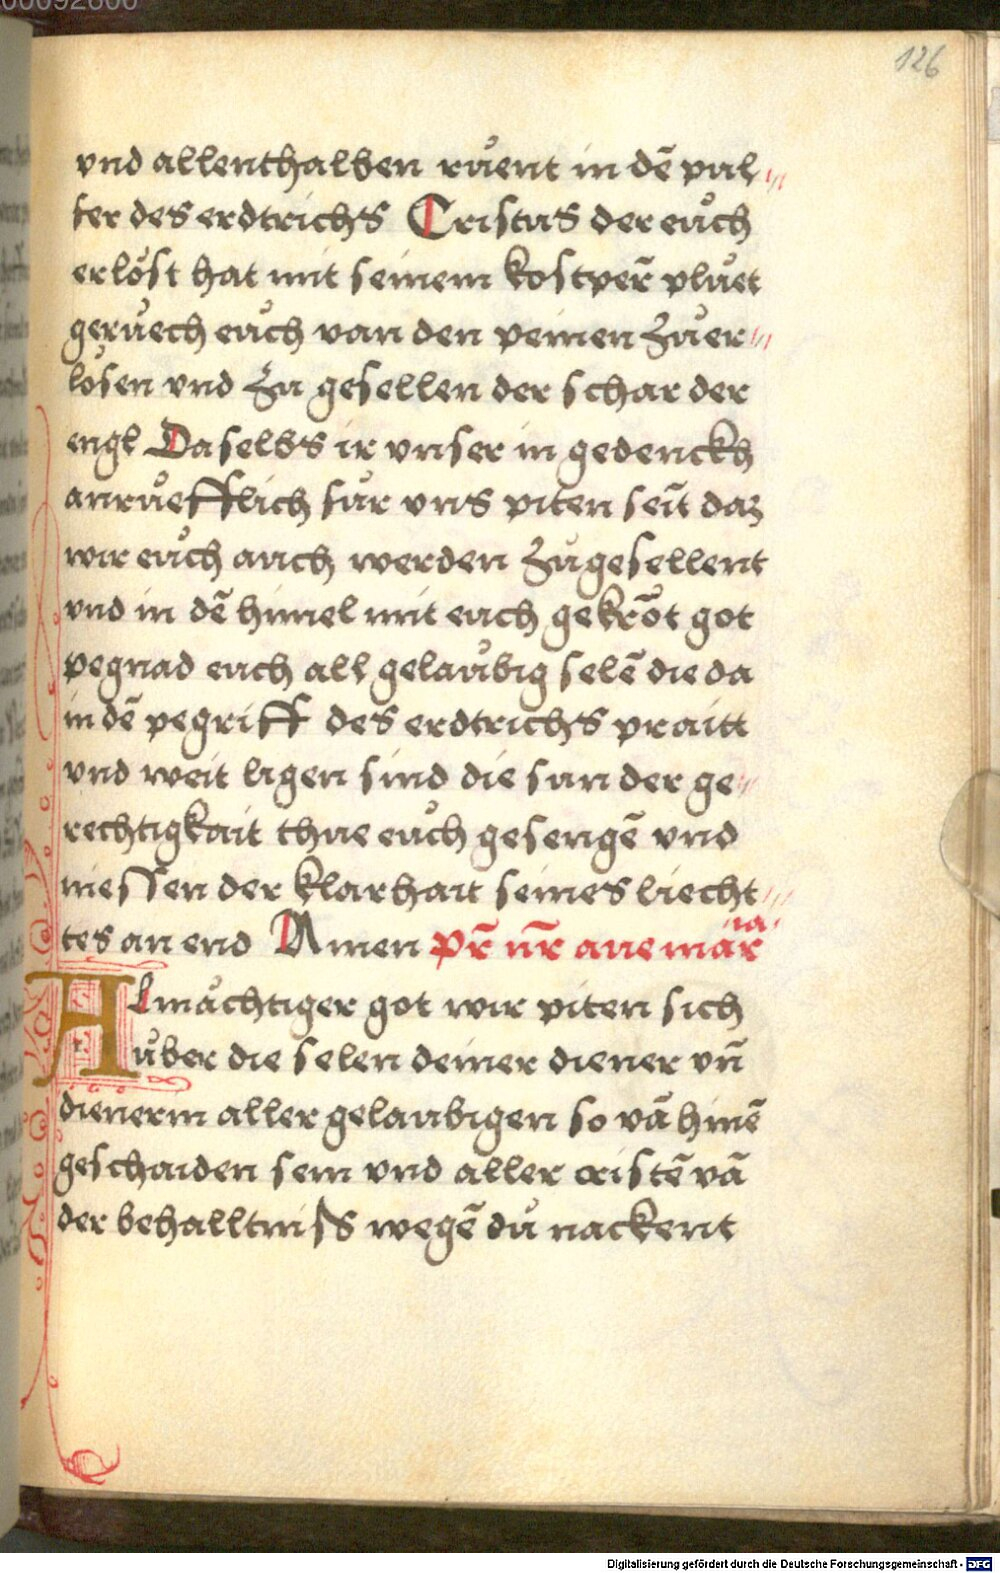 126
vnd allenthalben růent in dē pul
fer des erdtrichs Cristus der eůch
erlöst hat mit seinem kostper̄ plůet
gerůech eůch van den peinen zůer
lösen vnd zu gesellen der schar der
engl Daselbs ir vnser in gedenckh
anrůefflich für vns piten seīt daz
wir eůch auch werden zůgesellent
vnd in dē himel mit euch gekrōt got
pegnad euch all gelaůbig selē die da
in dē pegriff des erdtrichs praitt
vnd weit ligen sind die sun der ge
rechtigkait thue eůch gesengē vnd
niessen der klarhait seines liecht
tes an end Amen pr̄ nr̄ aue mar
ia
Almächtiger got wir piten sich
über die selen deiner diener vn̄
dienerin aller gelaubigen so vā hinē
geschaiden sein vnd aller cristē vā
der behalltniss wegē dů nackent
Digitalisierung gefördert durch die Deutsche Forschungsgemeinschaft - DFG